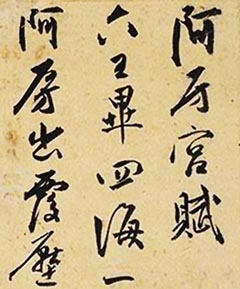 阿房宮賦
六王畢四海一
阿房出覆壓